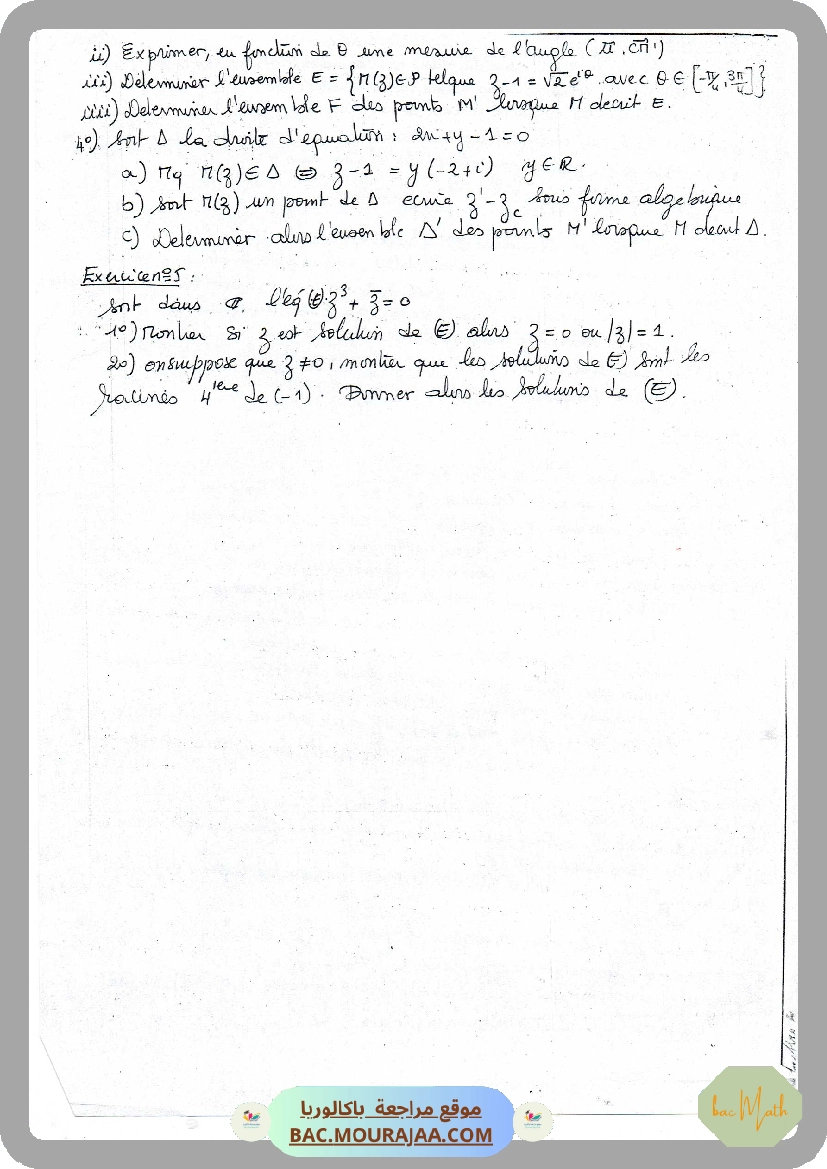 ii) Exprimer, en fonction de θ une mesure de l'angle (ū, CM')
iii) Déterminer l'ensemble E = {M(z)∈P tel que z-1 = √2 e^iθ avec θ ∈ [-π/4, 3π/4]}
iiii) Determiner l'ensemble F des points M' lorsque M decrit E.
4°) Soit Δ la droite d'equation : 2x+y-1=0
a) Mq M(z)∈Δ ⇔ z-1 = y(-2+i) y∈R.
b) Soit M(z) un point de Δ ecrire z'-z_c sous forme algebrique
c) Determiner alors l'ensemble Δ' des points M' lorsque M decrit Δ.
Exercice n°5 :
Soit dans ℂ, l'éq (E): z³ + z̄ = 0
1°) Montrer si z est solution de (E) alors z = 0 ou |z| = 1.
2°) on suppose que z ≠ 0, montrer que les solutions de (E) sont les
racines 4^ième de (-1). Donner alors les solutions de (E).
موقع مراجعة باكالوريا
BAC.MOURAJAA.COM
bac Math